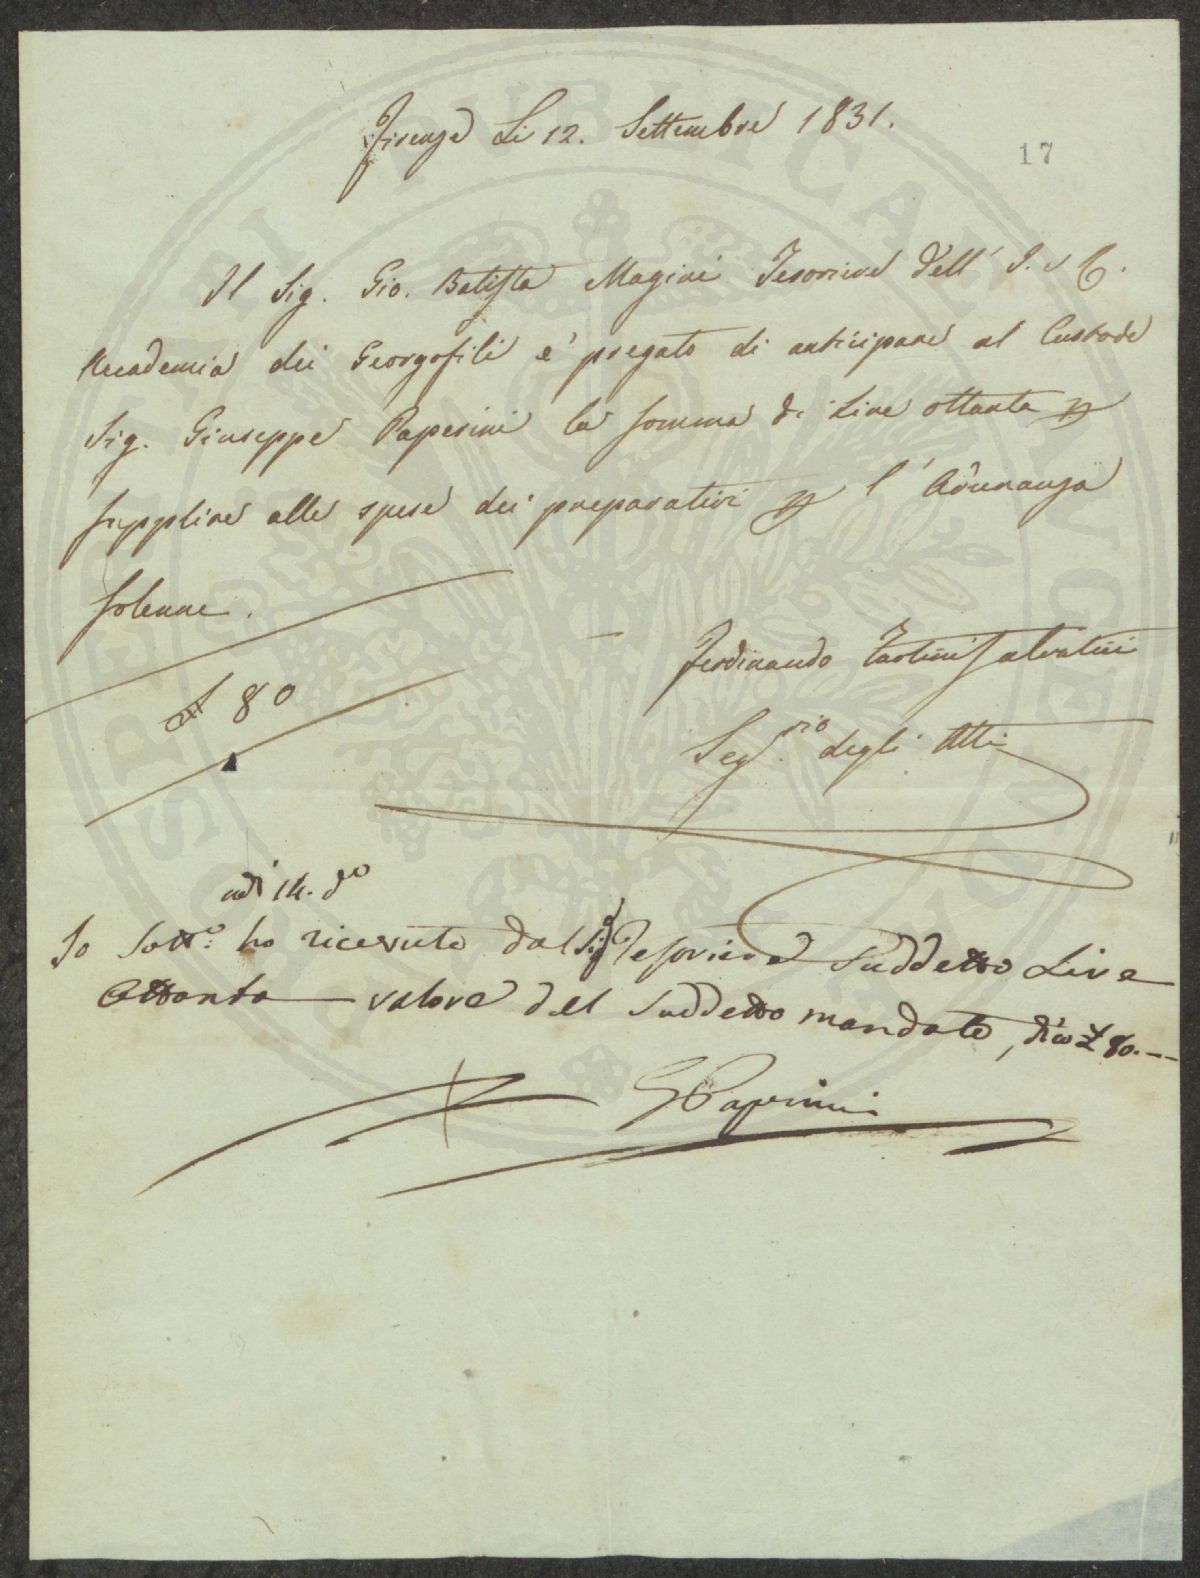 Firenze Li 12. Settembre 1831.
17
Il Sig. Gio. Batista Magini Tesoriere dell' I. e R.
Accademia dei Georgofili e' pregato di anticipare al Custode
Sig. Giuseppe Paperini la somma di Lire ottanta p
supplire alle spese dei preparativi p l' Adunanza
solenne.
Ferdinando Tartini Salvatici
£ 80
Seg.rio degli Atti
adì 14. do
Io Sotto: ho ricevuto dal Sig. Tesoriere Suddetto Lire
Ottanta valore del suddetto mandato, dico £ 80.--
G Paperini